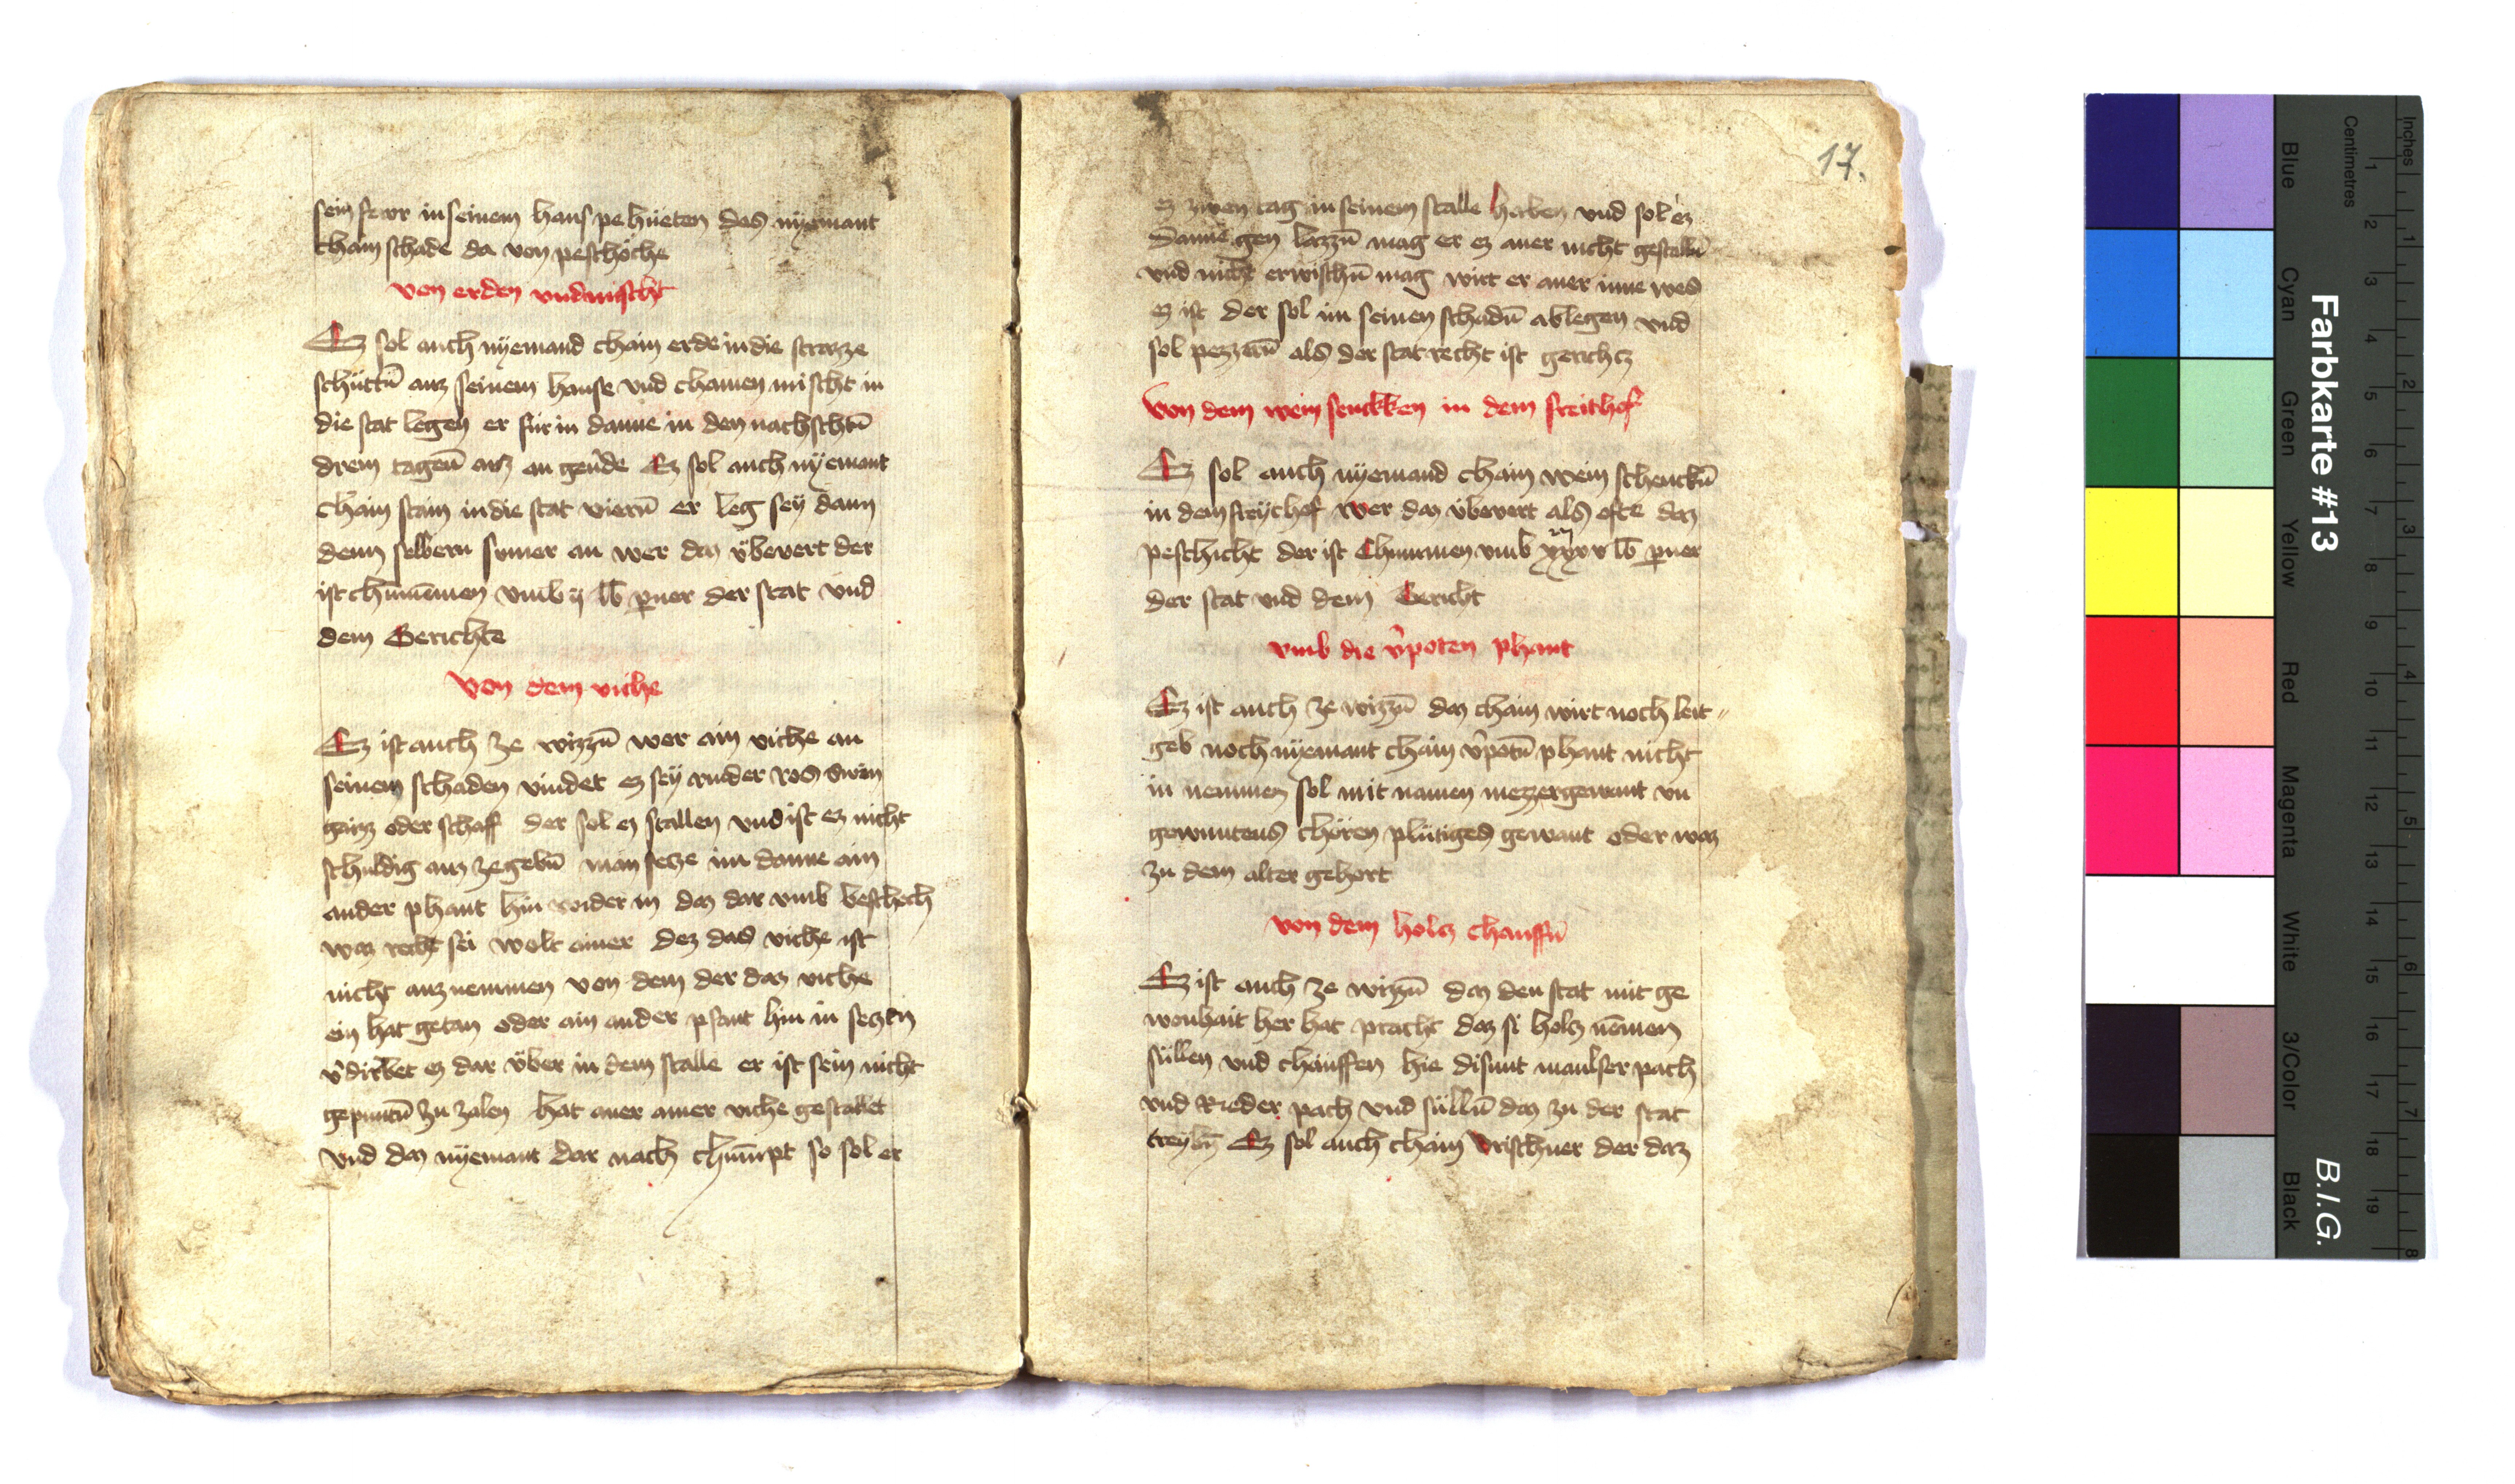 sein fewr in seinem haus pe hüeten das nyemant
chain schade da von peschöche
von erden vnd mischt
Ez sol auch nyemand chain erde in die strazze
schüttn̄ auz seinem hause vnd chainen mischt in
die stat legen er für in danne in den nachschtn̄
drein tagen̄ auz an geu̇de Ez sol auch nyemant
chain stain in die stat viern̄ er leg sey dann
denn selbern sumer an wer daz v̈bevert der
ist chumēmen vmb ij lb̄ pner der stat vnd
dem Gerichte
Von dem viche
Ez ist auch ze wizzn̄ wer ain viche an
seinem schaden vindet ez sey rinder ros swein
gaiz oder schaff der sol ez stallen vnd ist ez nicht
schuldig auz zegebn̄ man setze im danne ain
ander phant hin wider in daz dar vmb beschech
waz recht sei wolt ainer dez das viche ist
nicht auz nemmen von dem der daz viche
ein hat getan oder ain ander pfant hin in setzen
v̓dirbet ez dar v̈ber in dem stalle er ist sein nicht
gepuntn̄ zu zalen hat auer ainer viche gestallet
vnd daz nyemant dar nach chūmpt so sol er
17.
ez zwen tag in seinem stalle haben vnd sol ez
danne gen lazzn̄ mag er ez auer nicht gestalln̄
vnd nicht erwischn̄ mag wirt er auer inne wes
ez ist der sol im seinen schadn̄ ablegen vnd
sol pezzern̄ als der stat recht ist gerichtz
Von dem wein senckken in dem freithof
Ez sol auch nyemand chain wein schenckn̄
in dem freythof wer daz v̈bevert als ofte daz
peschicht der ist Chummen vmb xxxv lb̄ pner
der stat vnd dem Gericht
vmb die v̓poten phant
Ez ist auch ze wizzn̄ daz chain wirt noch leit〃
geb noch nyemant chain v̓potn̄ phant nicht
in nemmen sol mit namen mezzergewant vn
gewuntens choren plütiges gewant oder waz
zu dem alter gehört
von dem holtz chauffn̄
Ez ist auch ze wizzn̄ daz den stat mit ge
wonhait her hat pracht daz si holtz nēmen
süllen vnd chauffen hie disunt maulser pach
vnd Rieder pach vnd sülln̄ daz zu der stat
treybn̄ Ez sol auch chain Vrischner der daz
Farbkarte #13
B.I.G.
Inches
Centimetres
1 2 3 4 5 6 7 8
1 2 3 4 5 6 7 8 9 10 11 12 13 14 15 16 17 18 19
Blue
Cyan
Green
Yellow
Red
Magenta
White
3/Color
Black